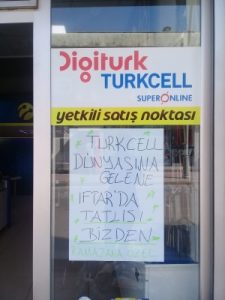 Digiturk
TURKCELL
SUPERONLINE
yetkili satış noktası
TURKCELL
DÜNYASINA
GELENE
İFTAR'DA
TATLISI
BİZDEN
RAMAZANA ÖZEL